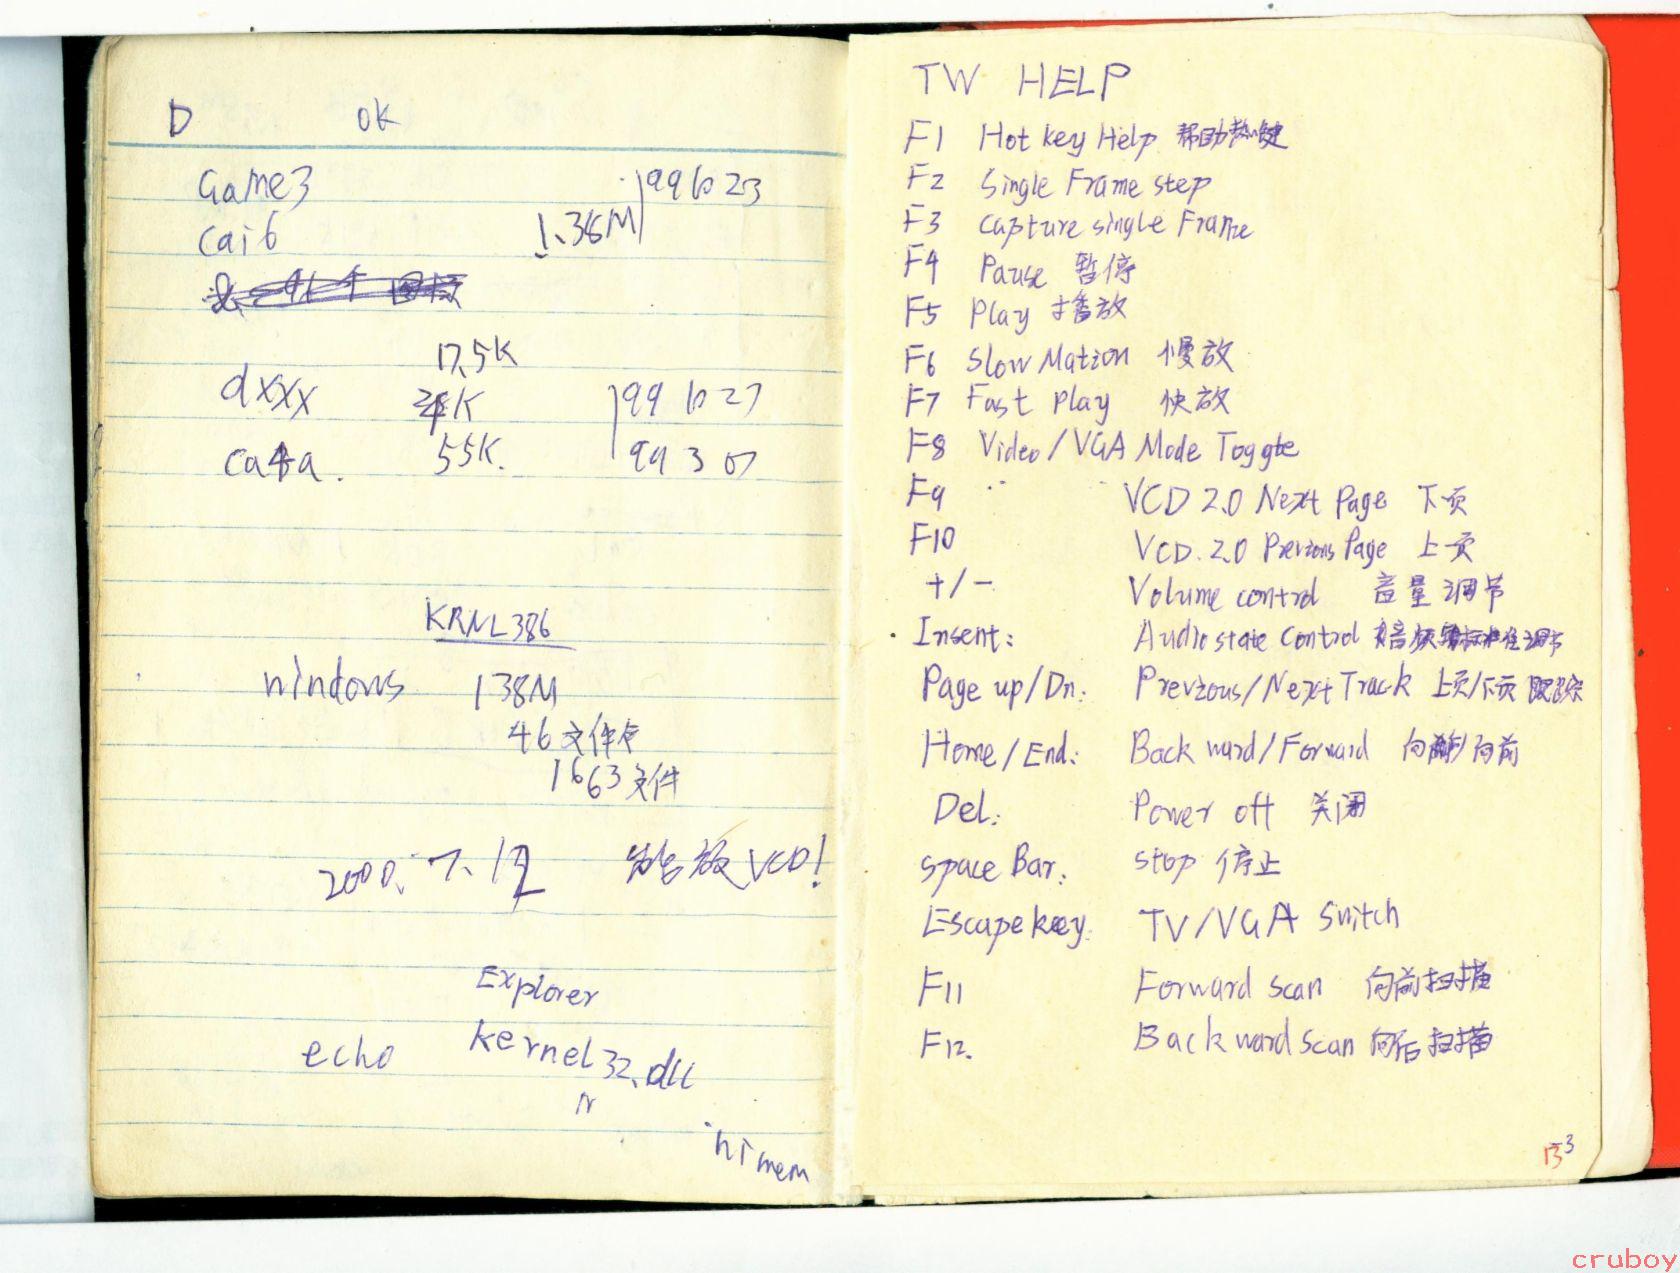 D OK
Game3 199 10 23
Cai6 1.38M
17.5K
dxxx K 199 10 27
55K. 99 3 07
KRNL386
windows 138M
46 文件夹
1663 文件
2000. 7. 12 能放VCD!
Explorer
echo kernel32.dll
himem
TW HELP
F1 Hot key Help 帮助热键
F2 Single Frame step
F3 Capture single Frame
F4 Pause 暂停
F5 Play 播放
F6 Slow Mation 慢放
F7 Fast Play 快放
F8 Video/VGA Mode Toggte
F9 VCD 2.0 Next Page 下页
F10 VCD. 2.0 Previons Page 上页
+/- Volume control 音量调节
Insent: Audio state Control 调节
Page up/Dn: Previous/Next Track 上页/下页 跟踪
Home/End: Back ward/Forward 向前
Del: Power off 关闭
Space Bar: Stop 停止
Escape key: TV/VGA Switch
F11 Forward Scan 向前扫描
F12. Back ward Scan 向后扫描
133
cruboy